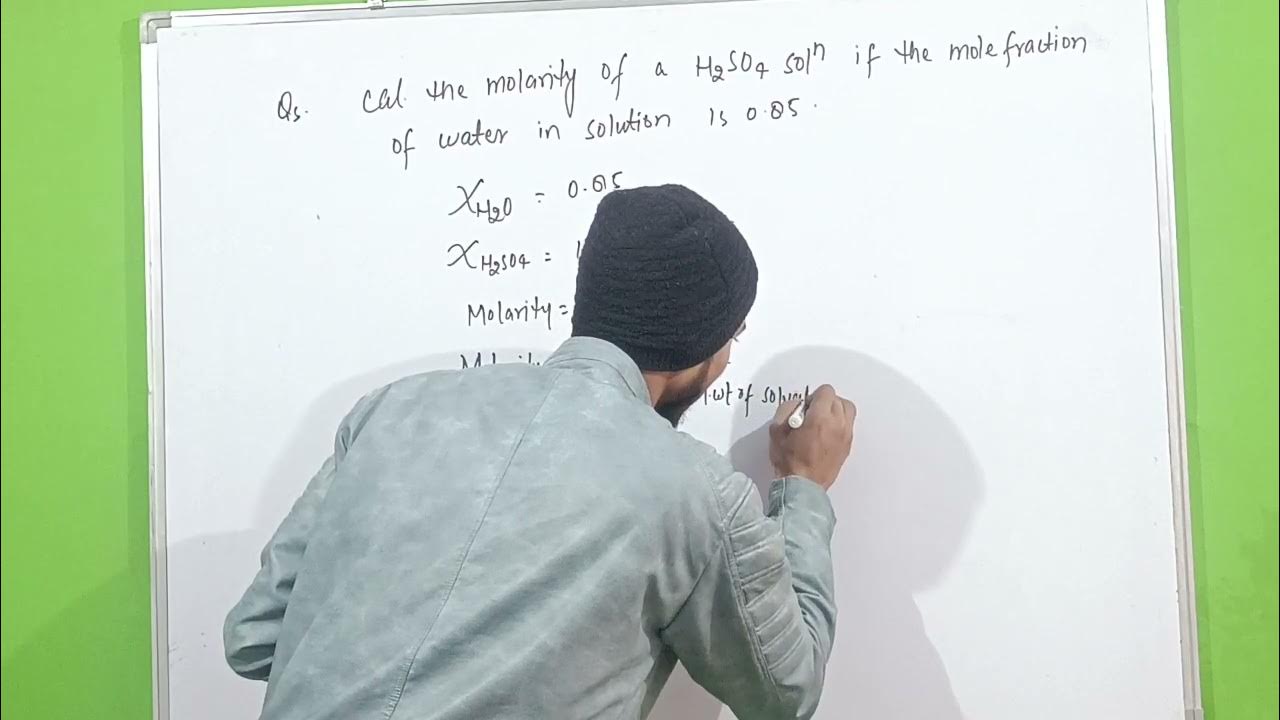 Qs. Cal. the molarity of a H₂SO₄ solⁿ if the mole fraction
of water in solution is 0.85.
X_H₂O = 0.85
X_H₂SO₄ =
Molarity =
wt of